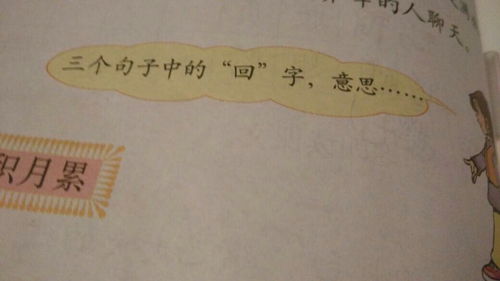 的人聊天。
三个句子中的“回”字，意思……
积月累